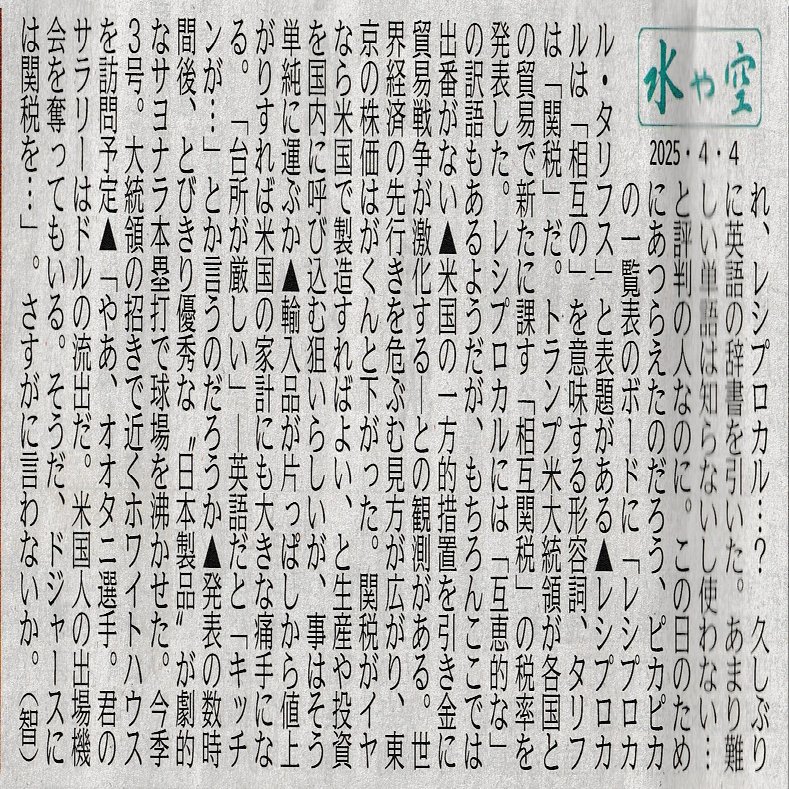 水や空
2025・4・4
れ、レシプロカル…？　久しぶり
に英語の辞書を引いた。あまり難
しい単語は知らないし使わない…
と評判の人なのに。この日のため
にあつらえたのだろう、ピカピカ
の一覧表のボードに「レシプロカ
ル・タリフス」と表題がある▲レシプロカ
ルは「相互の」を意味する形容詞、タリフ
は「関税」だ。トランプ米大統領が各国と
の貿易で新たに課す「相互関税」の税率を
発表した。レシプロカルには「互恵的な」
の訳語もあるようだが、もちろんここでは
出番がない▲米国の一方的措置を引き金に
貿易戦争が激化する―との観測がある。世
界経済の先行きを危ぶむ見方が広がり、東
京の株価はがくんと下がった。関税がイヤ
なら米国で製造すればよい、と生産や投資
を国内に呼び込む狙いらしいが、事はそう
単純に運ぶか▲輸入品が片っぱしから値上
がりすれば米国の家計にも大きな痛手にな
る。「台所が厳しい」―英語だと「キッチ
ンが…」とか言うのだろうか▲発表の数時
間後、とびきり優秀な〝日本製品〟が劇的
なサヨナラ本塁打で球場を沸かせた。今季
3号。大統領の招きで近くホワイトハウス
を訪問予定▲「やあ、オオタニ選手。君の
サラリーはドルの流出だ。米国人の出場機
会を奪ってもいる。そうだ、ドジャースに
は関税を…」。さすがに言わないか。（智）